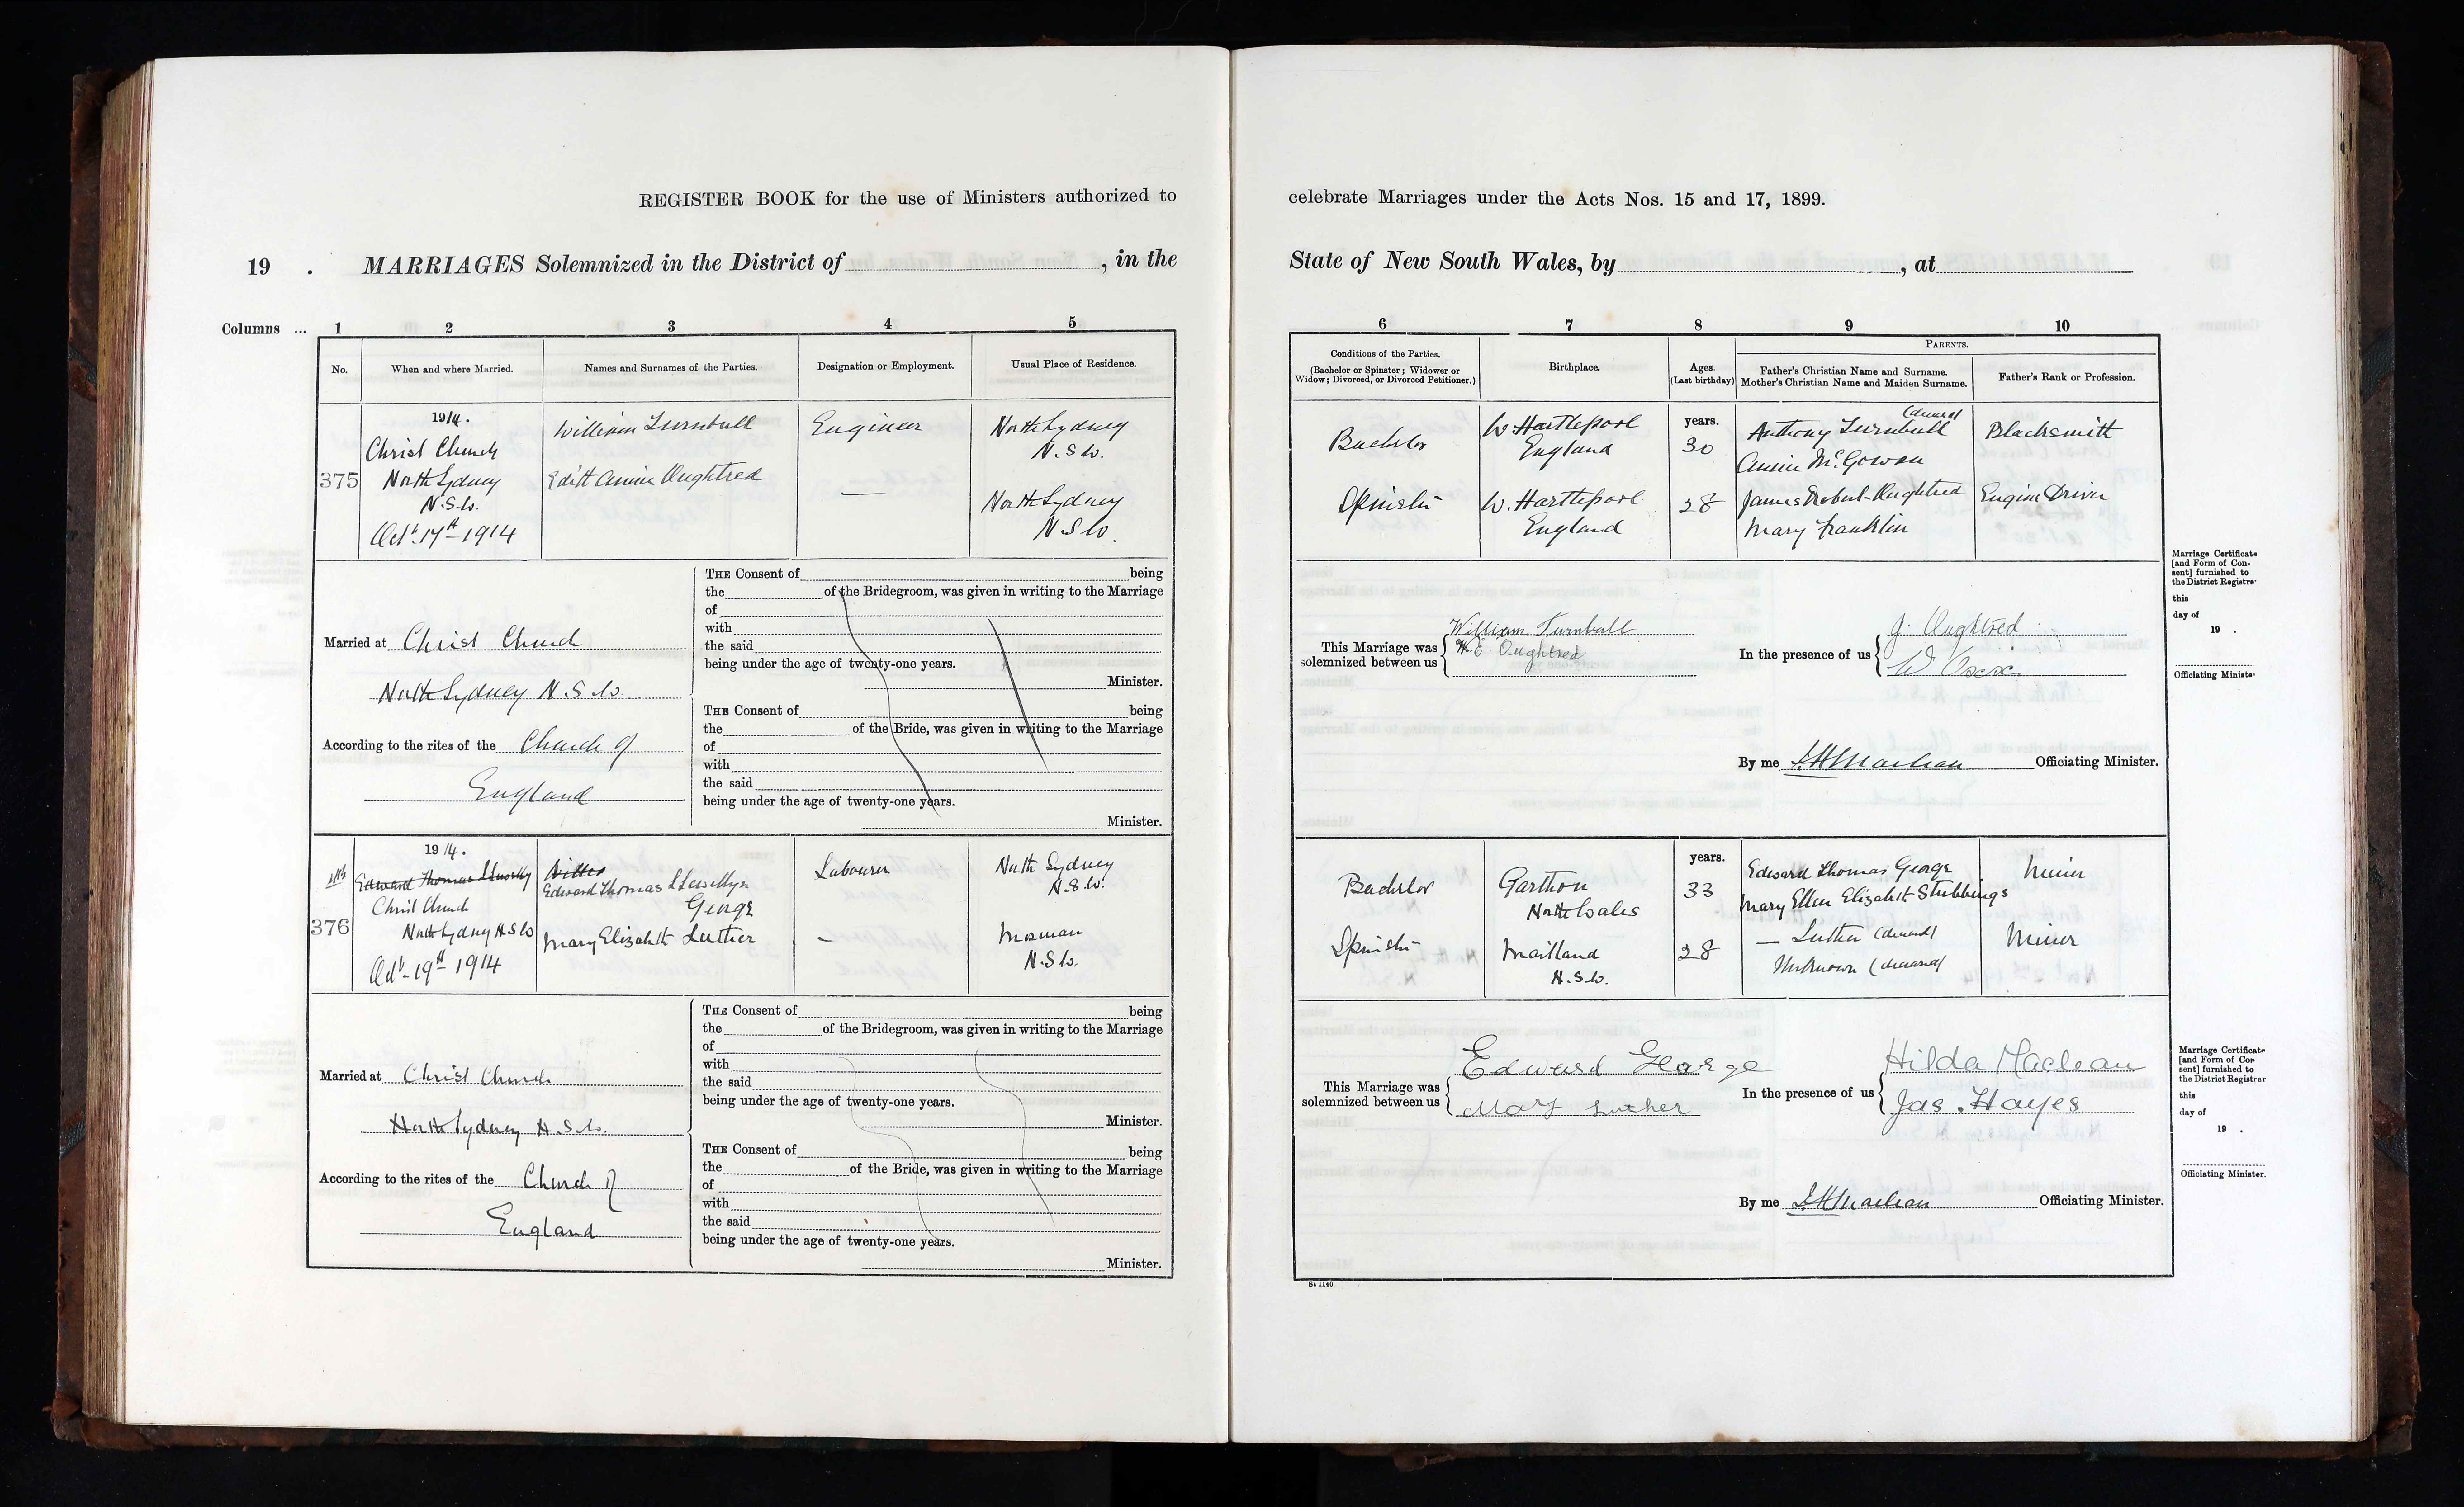 REGISTER BOOK for the use of Ministers authorized to
19 . MARRIAGES Solemnized in the District of , in the
Columns ... 1 2 3 4 5
No. When and where Married. Names and Surnames of the Parties. Designation or Employment. Usual Place of Residence.
1914.
Christ Church
North Sydney
N.S.W.
Oct. 17th 1914
375
William Turnbull
Edith Annie Oughtred
Engineer
—
North Sydney
N.S.W.
North Sydney
N.S.W.
Married at Christ Church
North Sydney N.S.W.
According to the rites of the Church of
England
THE Consent of being
the of the Bridegroom, was given in writing to the Marriage
of
with
the said
being under the age of twenty-one years.
Minister.
THE Consent of being
the of the Bride, was given in writing to the Marriage
of
with
the said
being under the age of twenty-one years.
Minister.
1914.
Edward Thomas
Christ Church
North Sydney N.S.W.
Oct. 19th 1914
376
Edward Thomas Llewellyn
George
Mary Elizabeth Luther
Labourer
-
North Sydney
N.S.W.
Mosman
N.S.W.
Married at Christ Church
North Sydney N.S.W.
According to the rites of the Church of
England
THE Consent of being
the of the Bridegroom, was given in writing to the Marriage
of
with
the said
being under the age of twenty-one years.
Minister.
THE Consent of being
the of the Bride, was given in writing to the Marriage
of
with
the said
being under the age of twenty-one years.
Minister.
celebrate Marriages under the Acts Nos. 15 and 17, 1899.
State of New South Wales, by , at
6 7 8 9 10
Conditions of the Parties.
(Bachelor or Spinster; Widower or
Widow; Divorced, or Divorced Petitioner.)
Birthplace.
Ages.
(Last birthday)
PARENTS.
Father's Christian Name and Surname.
Mother's Christian Name and Maiden Surname.
Father's Rank or Profession.
Bachelor
Spinster
W. Hartlepool
England
W. Hartlepool
England
years.
30
28
(deceased)
Anthony Turnbull
Annie McGowan
James Robert Oughtred
Mary Franklin
Blacksmith
Engine Driver
This Marriage was
solemnized between us
William Turnbull
E. Oughtred
In the presence of us
J. Oughtred
By me Officiating Minister.
Marriage Certificate
[and Form of Con-
sent] furnished to
the District Registra
this
day of
19 .
Officiating Ministe
Bachelor
Spinster
Garthon
North Wales
Maitland
N.S.W.
years.
33
28
Edward Thomas George
Mary Ellen Elizabeth Stubbings
— Luther (deceased)
Unknown (deceased)
Miner
Miner
This Marriage was
solemnized between us
Edward George
Mary Luther
In the presence of us
Hilda Maclean
Jas. Hayes
By me Officiating Minister.
Marriage Certificate
[and Form of Con
sent] furnished to
the District Registrar
this
day of
19 .
Officiating Minister.
St 1140